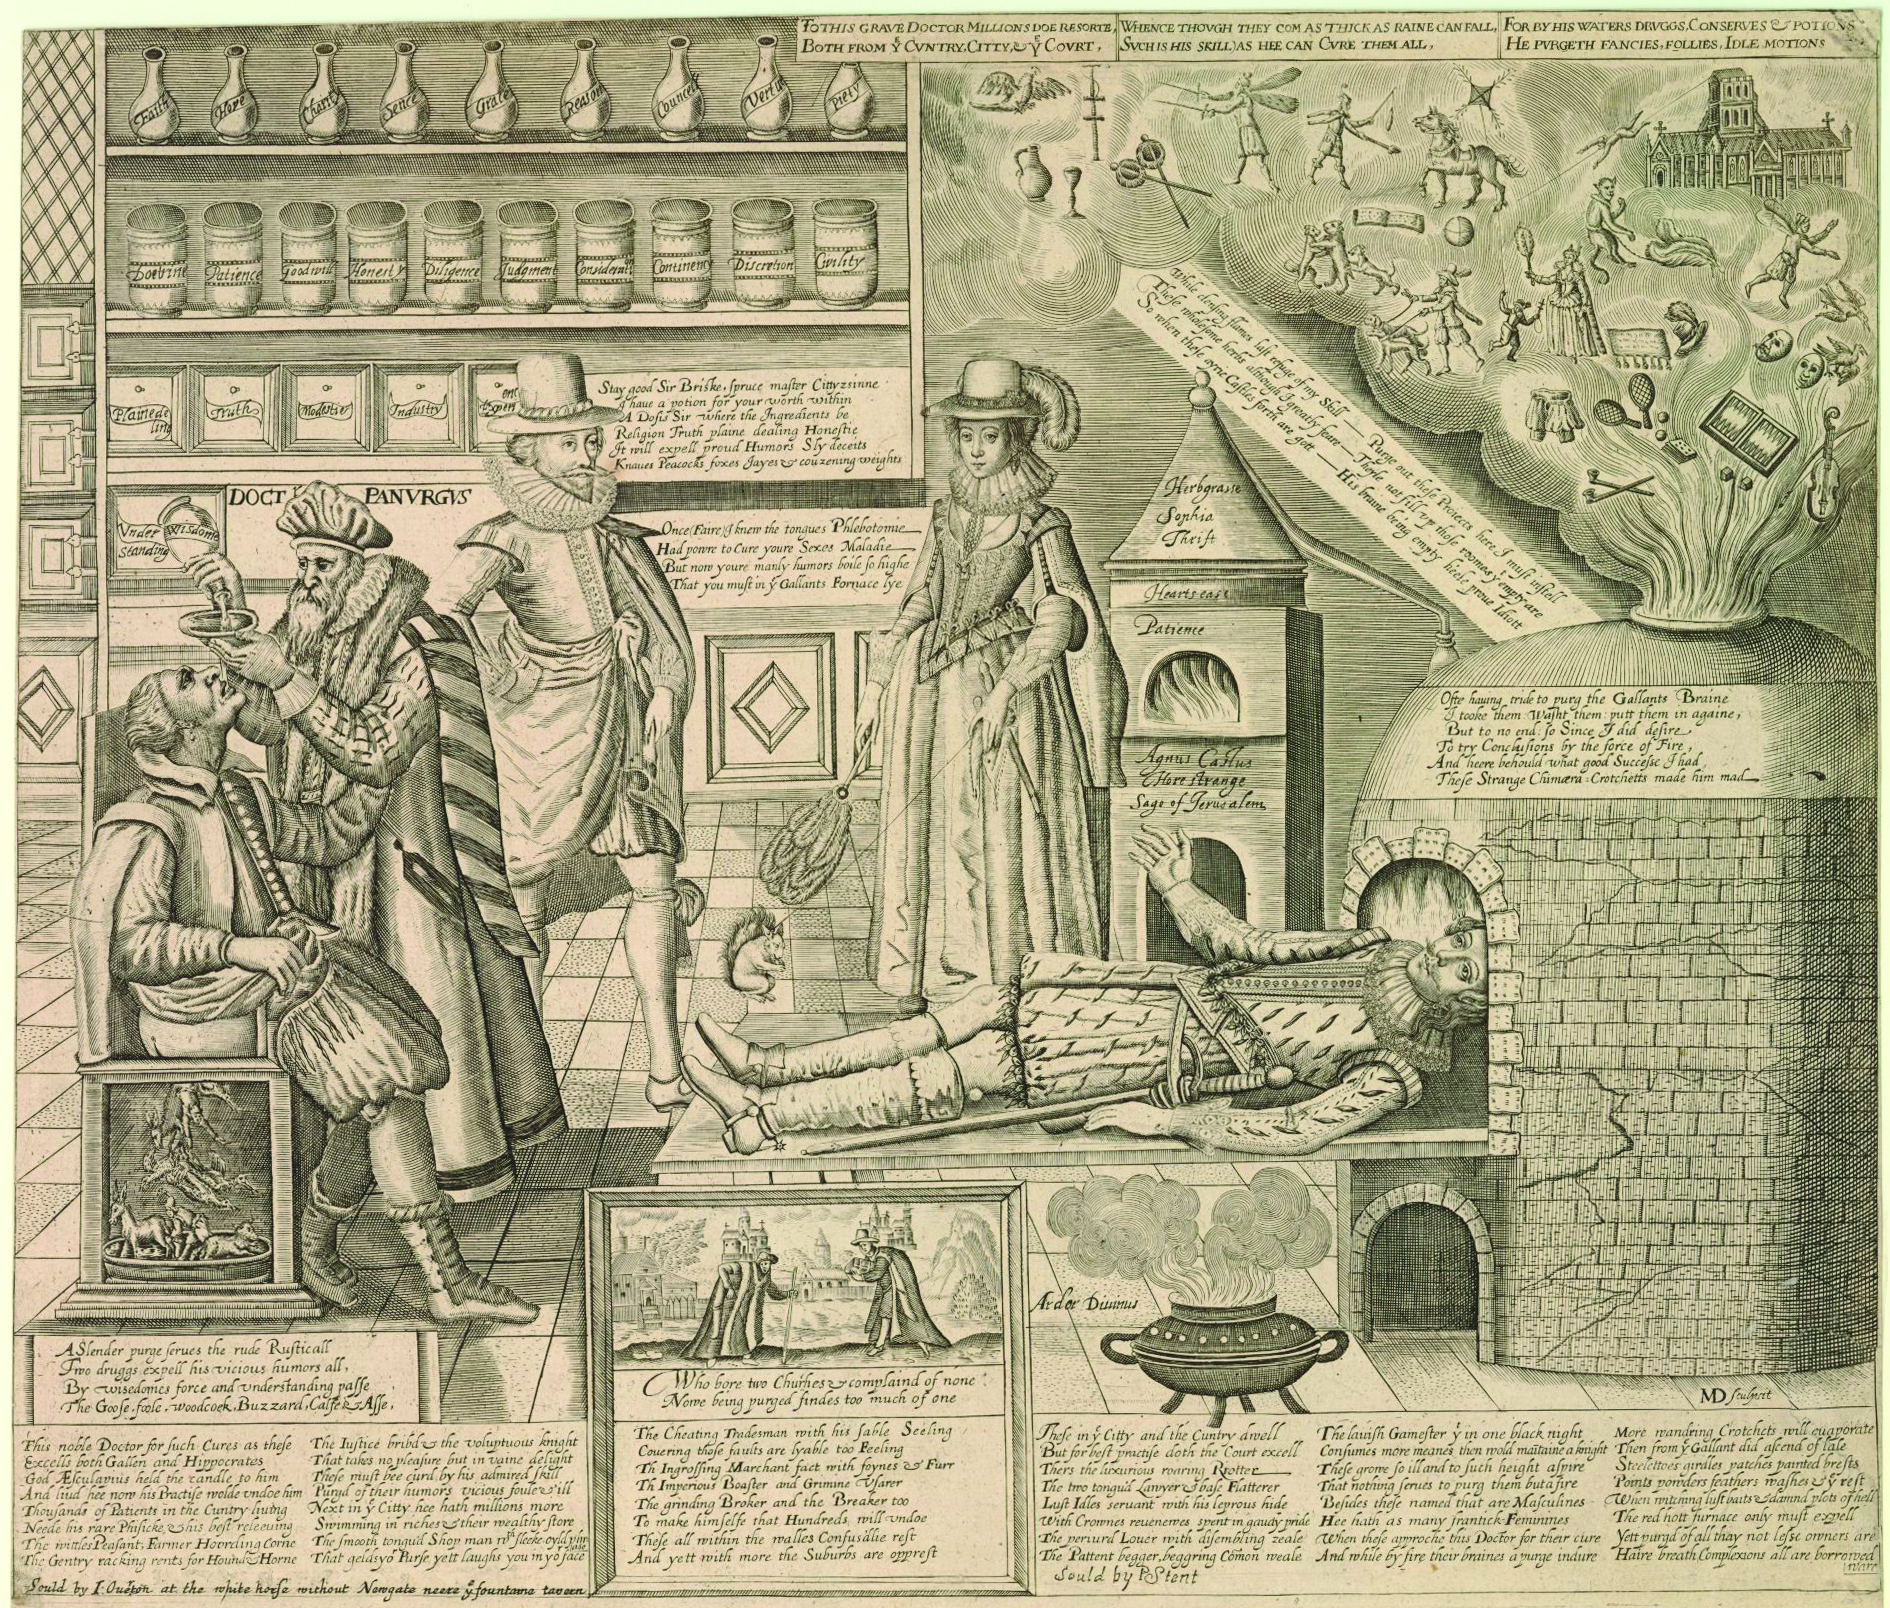 TO THIS GRAVE DOCTOR MILLIONS DOE RESORTE,
BOTH FROM Yͤ CVNTRY, CITTY, & Yͤ COVRT,
WHENCE THOVGH THEY COM AS THICK AS RAINE CAN FALL,
SVCH IS HIS SKILL) AS HEE CAN CVRE THEM ALL,
FOR BY HIS WATERS DRVGGS, CONSERVES & POTIONS
HE PVRGETH FANCIES, FOLLIES, IDLE MOTIONS
Faith
Hope
Charity
Sence
Grace
Reason
Councell
Vertue
Piety
Doctrine
Patience
Goodwill
Honesty
Diligence
Judgment
Considerati
Continency
Discretion
Civility
Plainedeling
Truth
Modestie
Industry
Stay good Sir Briske, spruce master Cittyzsinne
I have a potion for your worth within
A Dosis Sir where the Ingredients be
Religion Truth plaine dealing Honestie
It will expell proud Humors Sly deceits
Knaues Peacocks foxes Jayes & couzening weights
DOCT PANVRGVS
Under standing
Wisdome
Once (Faire) I knew the tongues Phlebotomie
Had powre to Cure youre Sexes Maladie
But now youre manly humors boile so highe
That you must in yͤ Gallants Fornace lye
While dousing fumes last refuge of my Skill — Purge out these Proiects here I must instill
These wholesome herbs although I greatly feare — Theyle not fill up those roomes yͭ empty are
So when these ayrie Castles forth are gott — His braine being empty heele proue Idiott
Herbgrasse
Sophia
Thrift
Hearts ease
Patience
Agnus Castus
Hore strange
Sage of Jerusalem
Ofte hauing tride to purg the Gallants Braine
I tooke them Washt them: putt them in againe,
But to no end: so Since I did desire
To try Conclusions by the force of Fire,
And heere behould what good Successe I had
These Strange Chimæra Crotchetts made him mad
Ardor Diuinus
MD sculpsit
A Slender purge serues the rude Rusticall
Two druggs expell his vicious humors all,
By wisedomes force and understanding passe
The Goose, foole, woodcock, Buzzard, Calfe & Asse,
Who bore two Churhes & complaind of none
Nowe being purged findes too much of one
This noble Doctor for such Cures as these
Excells both Gallen and Hippocrates
God Æsculapius held the candle to him
And liud hee now his Practise wolde undoe him
Thousands of Patients in the Cuntry liuing
Neede his rare Phisicke, & his best releeuing
The wittles Peasant; Farmer Hoording Corne
The Gentry racking rents for Hound & Horne
The Iustice bribd & the voluptuous knight
That takes no pleasure but in vaine delight
These must bee curd by his admired skill
Purgd of their humors vicious foule & ill
Next in yͤ Citty hee hath millions more
Swimming in riches & their wealthy store
The smooth tongud Shop man wͭʰ sleeke oyld phrase
That gelds yoͬ Purse, yett laughs you in yoͬ face
The Cheating Tradesman with his sable Seeling
Couering those faults are lyable too Feeling
Th Ingrossing Marchant fact with foynes & Furr
Th Imperious Boaster and Grimme Vsurer
The grinding Broker and the Breaker too
To make himselfe that Hundreds will undoe
These all within the walles Confusdlie rest
And yett with more the Suburbs are opprest
These in yͤ Citty and the Cuntry dwell
But for best practise doth the Court excell
Thers the luxurious roaring Riotter
The two tongud Lawyer & base Flatterer
Lust Idles seruant with his leprous hide
With Crownes reuenewes spent in gaudy pride
The periurd Louer with dissembling zeale
The Pattent begger, beggring Comon weale
The lauish Gamester yͭ in one black night
Consumes more meanes then wold maintaine a knight
These growe so ill and to such height aspire
That nothing serues to purg them but a fire
Besides these named that are Masculines
Hee hath as many frantick Feminines
When these approche this Doctor for their cure
And while by fire their braines a purge indure
More wandring Crotchets will euaporate
Then from yͤ Gallant did ascend of late
Steelettoes girdles patches painted brests
Points powders feathers washes & yͤ rest
When witching lust baits & damnd plots of hell
The red hott furnace only must expell
Yett purgd of all thay not lesse owners are
Haire breath Complexions all are borrowed ware
Sould by I Ouerton at the white horse without Newgate neere yͤ fountaine tavern
Sould by P Stent